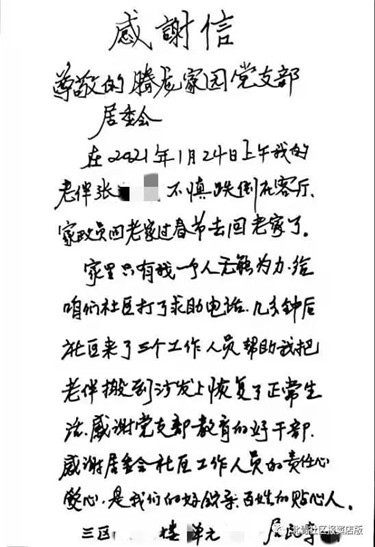 感謝信
尊敬的腾龙家园党支部
居委会
在2021年1月24日上午我的
老伴张 不慎跌倒在客厅、
家政员回老家过春节去回老家了。
家里只有我一个人无能为力.给
咱们社区打了求助电话.几分钟后
社区来了三个工作人员帮助我把
老伴搬到沙发上恢复了正常生
活.感谢党支部教育的好干部.
感谢居委会社区工作人员的责任心
爱心.是我们的好领亲百姓的贴心人。
三区 楼 单元 居民
北潞社区